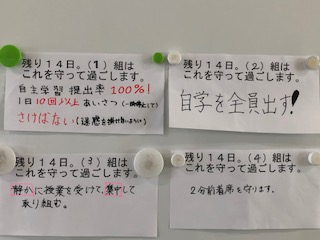 残り14日。(1)組は
これを守って過ごします。
自主学習 提出率 100%!
1日10回以上あいさつ(一時停止して)
さけばない(迷惑を掛け合いしない)
残り14日。(2)組は
これを守って過ごします。
自学を全員出す!
残り14日。(3)組は
これを守って過ごします。
静かに授業を受けて、集中して
取り組む。
残り14日。(4)組は
これを守って過ごします。
2分前着席を守ります。